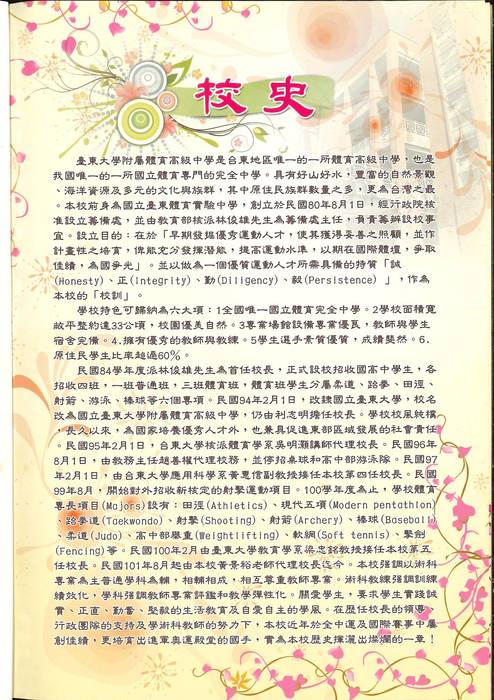 校史
臺東大學附屬體育高級中學是台東地區唯一的一所體育高級中學，也是
我國唯一的一所國立體育專門的完全中學。具有好山好水，豐富的自然景觀
、海洋資源及多元的文化與族群，其中原住民族群數量之多，更為台灣之最
。本校前身為國立臺東體育實驗中學，創立於民國80年8月1日，經行政院核
准設立籌備處，並由教育部核派林俊雄先生為籌備處主任，負責籌辦設校事
宜。設立目的：在於「早期發掘優秀運動人才，使其獲得妥善之照顧，並作
計畫性之培育，俾能充分發揮潛能，提高運動水準，以期在國際體壇，爭取
佳績，為國爭光」。並以做為一個優質運動人才所需具備的特質「誠
(Honesty)、正(Integrity)、勤(Diligency)、毅(Persistence) 」，作為
本校的「校訓」。
學校特色可歸納為六大項：1全國唯一國立體育完全中學。2學校面積寬
敞平整約達33公頃，校園優美自然。3專業場館設備專業優良，教師與學生
宿舍完備。4.擁有優秀的教師與教練。5學生選手素質優質，成績斐然。6.
原住民學生比率超過60%。
民國84學年度派林俊雄先生為首任校長，正式設校招收國高中學生，各
招收四班，一班普通班，三班體育班，體育班學生分屬柔道、跆拳、田徑、
射箭、游泳、棒球等六個專項。民國94年2月1日，改隸國立臺東大學，校名
改為國立臺東大學附屬體育高級中學，仍由利志明擔任校長。學校校風純樸
，長久以來，為國家培養優秀人才外，也兼具促進東部區域發展的社會責任
。民國95年2月1日，台東大學核派體育學系吳明灝講師代理校長。民國96年
8月1日，由教務主任趙善權代理校務，並停招桌球和高中部游泳隊。民國97
年2月1日，由台東大學應用科學系黃惠信副教授接任本校第四任校長。民國
99年8月，開始對外招收新核定的射擊運動項目。100學年度為止，學校體育
專長項目(Majors)設有：田徑(Athletics)、現代五項(Modern pentathlon)
、跆拳道(Taekwondo)、射擊(Shooting)、射箭(Archery)、棒球(Baseball)
、柔道(Judo)、高中部舉重(Weightlifting)、軟網(Soft tennis)、擊劍
(Fencing)等。民國100年2月由臺東大學教育學系梁忠銘教授接任本校第五
任校長。民國101年8月起由本校黃景裕老師代理校長迄今。本校強調以術科
專業為主普通學科為輔，相輔相成，相互尊重教師專業。術科教練強調訓練
績效化，學科強調教師專業評鑑和教學彈性化。關愛學生，要求學生實踐誠
實、正直、勤奮、堅毅的生活教育及自愛自主的學風。在歷任校長的領導、
行政團隊的支持及學術科教師的努力下，本校近年於全中運及國際賽事中屢
創佳績，更培育出進軍奧運殿堂的國手，實為本校歷史揮灑出燦爛的一章！